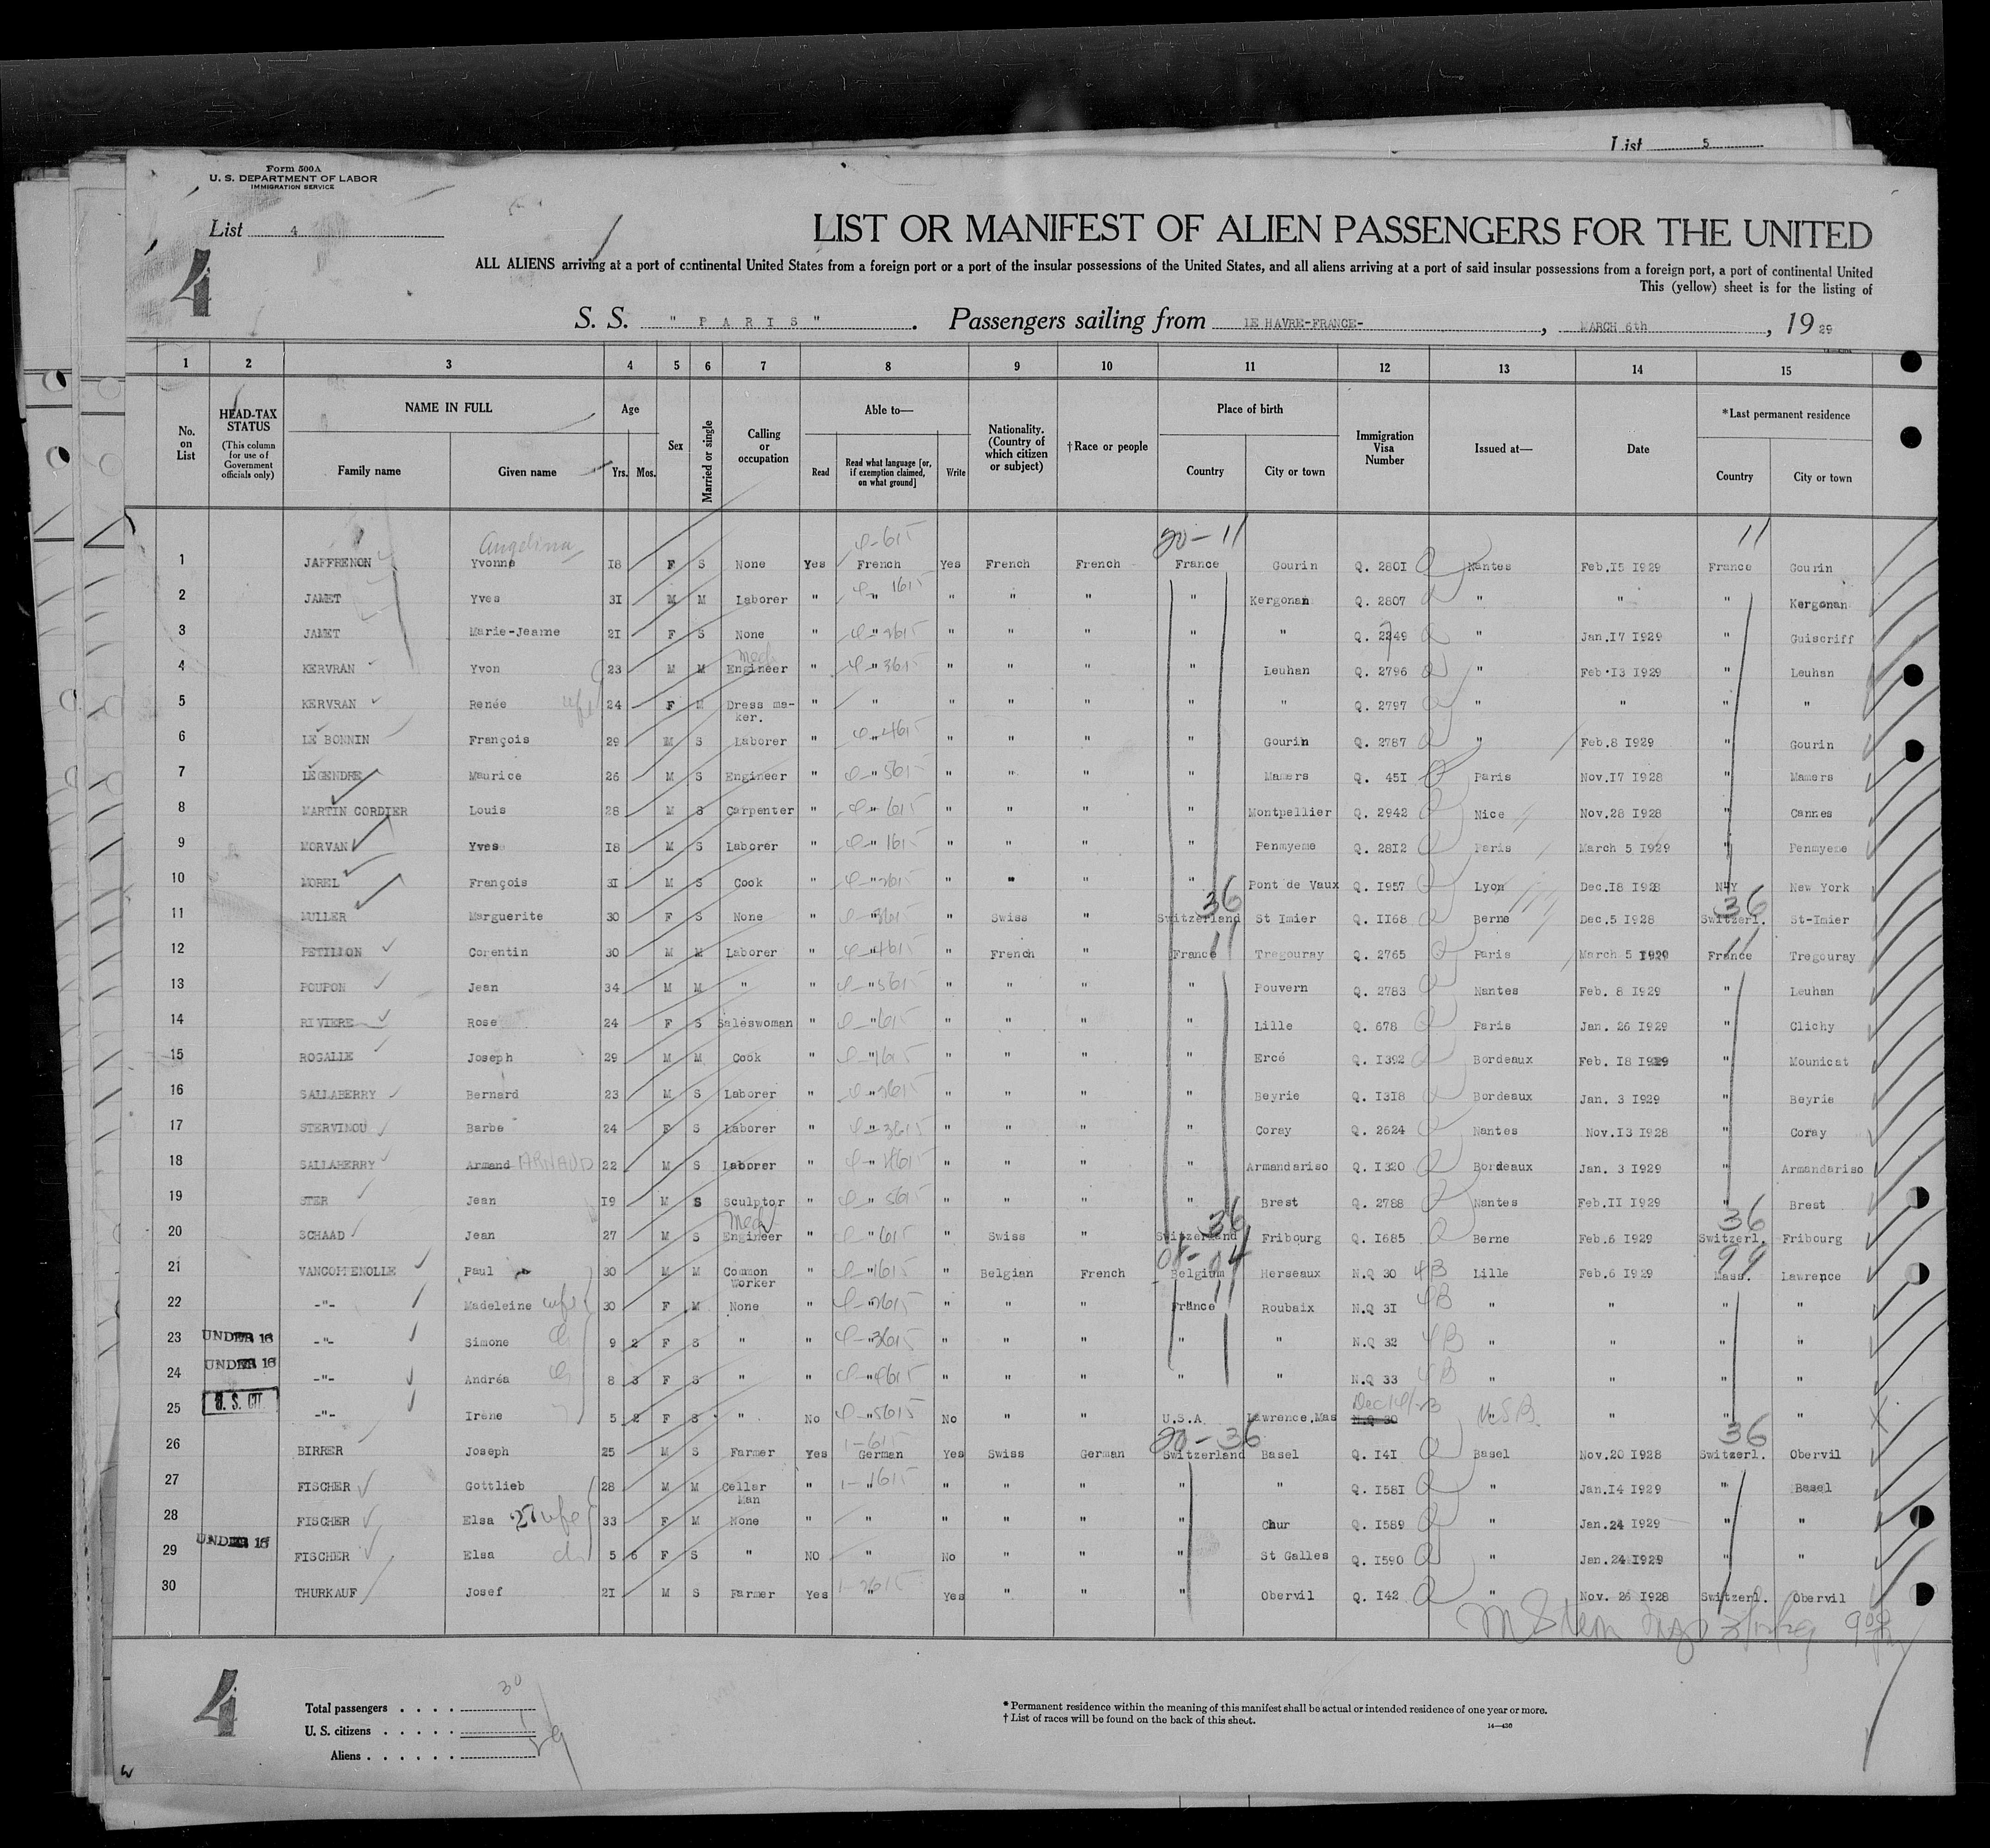 List 5
Form 500A
U. S. DEPARTMENT OF LABOR
IMMIGRATION SERVICE
List 4
4
LIST OR MANIFEST OF ALIEN PASSENGERS FOR THE UNITED
ALL ALIENS arriving at a port of continental United States from a foreign port or a port of the insular possessions of the United States, and all aliens arriving at a port of said insular possessions from a foreign port, a port of continental United
This (yellow) sheet is for the listing of
S. S. " P A R I S " . Passengers sailing from LE HAVRE-FRANCE- , MARCH 6th , 19 29
1 2 3 4 5 6 7 8 9 10 11 12 13 14 15
No. on List
HEAD-TAX STATUS (This column for use of Government officials only)
NAME IN FULL Family name Given name
Age Yrs. Mos.
Sex
Married or single
Calling or occupation
Able to— Read Read what language [or, if exemption claimed, on what ground] Write
Nationality. (Country of which citizen or subject)
†Race or people
Place of birth Country City or town
Immigration Visa Number
Issued at—
Date
*Last permanent residence Country City or town
Angelina 20-11 11
1 JAFFRENON Yvonne 18 F S None Yes French Yes French French France Gourin Q. 2801 Nantes Feb.15 1929 France Gourin
2 JAMET Yves 31 M M Laborer " " " " " " Kergonan Q. 2807 " " " Kergonan
3 JAMET Marie-Jeanne 21 F S None " " " " " " " Q. 2249 " Jan.17 1929 " Guiscriff
4 KERVRAN Yvon 23 M M Mech Engineer " " " " " " Leuhan Q. 2796 " Feb.13 1929 " Leuhan
5 KERVRAN Renée wife 24 F M Dress maker. " " " " " " " Q. 2797 " " " "
6 LE BONNIN François 29 M S Laborer " " " " " " Gourin Q. 2787 " Feb.8 1929 " Gourin
7 LEGENDRE Maurice 26 M S Engineer " " " " " " Mamers Q. 451 Paris Nov.17 1928 " Mamers
8 MARTIN CORDIER Louis 28 M S Carpenter " " " " " " Montpellier Q. 2942 Nice Nov.28 1928 " Cannes
9 MORVAN Yves 18 M S Laborer " " " " " " Penmyeme Q. 2812 Paris March 5 1929 " Penmyeme
10 MOREL François 31 M S Cook " " " " " " Pont de Vaux Q. 1957 Lyon Dec.18 1928 NY New York
36 36
11 MULLER Marguerite 30 F S None " " " Swiss " Switzerland St Imier Q. 1168 Berne Dec.5 1928 Switzerl. St-Imier
12 PETILLON Corentin 30 M M Laborer " " " French " France Tregouray Q. 2765 Paris March 5 1929 France Tregouray
13 POUPON Jean 34 M M " " " " " " " Pouvern Q. 2783 Nantes Feb. 8 1929 " Leuhan
14 RIVIERE Rose 24 F S Saleswoman " " " " " " Lille Q. 678 Paris Jan. 26 1929 " Clichy
15 ROGALLE Joseph 29 M M Cook " " " " " " Ercé Q. 1392 Bordeaux Feb. 18 1929 " Mounicat
16 SALLABERRY Bernard 23 M S Laborer " " " " " " Beyrie Q. 1318 Bordeaux Jan. 3 1929 " Beyrie
17 STERVINOU Barbe 24 F S Laborer " " " " " " Coray Q. 2624 Nantes Nov.13 1928 " Coray
18 SALLABERRY Armand ARNAUD 22 M S Laborer " " " " " " Armandariso Q. 1320 Bordeaux Jan. 3 1929 " Armandariso
19 STER Jean 19 M S Sculptor " " " " " " Brest Q. 2788 Nantes Feb.11 1929 " Brest
36 36
20 SCHAAD Jean 27 M S Mech Engineer " " " Swiss " Switzerland Fribourg Q. 1685 Berne Feb.6 1929 Switzerl. Fribourg
21 VANCOPPENOLLE Paul 30 M M Common Worker " " " Belgian French Belgium Herseaux N.Q 30 4B Lille Feb.6 1929 Mass. Lawrence
22 -"- Madeleine wife 30 F M None " " " " " France Roubaix N.Q 31 4B " " " "
23 UNDER 16 -"- Simone 9 2 F S " " " " " " " " N.Q 32 4B " " " "
24 UNDER 16 -"- Andréa 8 3 F S " " " " " " " " N.Q 33 4B " " " "
25 U. S. CIT -"- Irène 5 2 F S " No " No " " U.S.A Lawrence,Mas N.Q 30 " " " "
20-36 36
26 BIRRER Joseph 25 M S Farmer Yes German Yes Swiss German Switzerland Basel Q. 141 Basel Nov.20 1928 Switzerl. Obervil
27 FISCHER Gottlieb 28 M M Cellar Man " " " " " " " Q. 1581 " Jan.14 1929 " Basel
28 FISCHER Elsa 27 wife 33 F M None " " " " " " Chur Q. 1589 " Jan.24 1929 " "
29 UNDER 16 FISCHER Elsa ch 5 6 F S " NO " No " " " St Galles Q. 1590 " Jan.24 1929 " "
30 THURKAUF Josef 21 M S Farmer Yes " Yes " " " Obervil Q. 142 " Nov. 26 1928 Switzerl. Obervil
4
Total passengers . . . . 30
U. S. citizens . . . . . 1
Aliens . . . . . . 29
* Permanent residence within the meaning of this manifest shall be actual or intended residence of one year or more.
† List of races will be found on the back of this sheet.
14—436